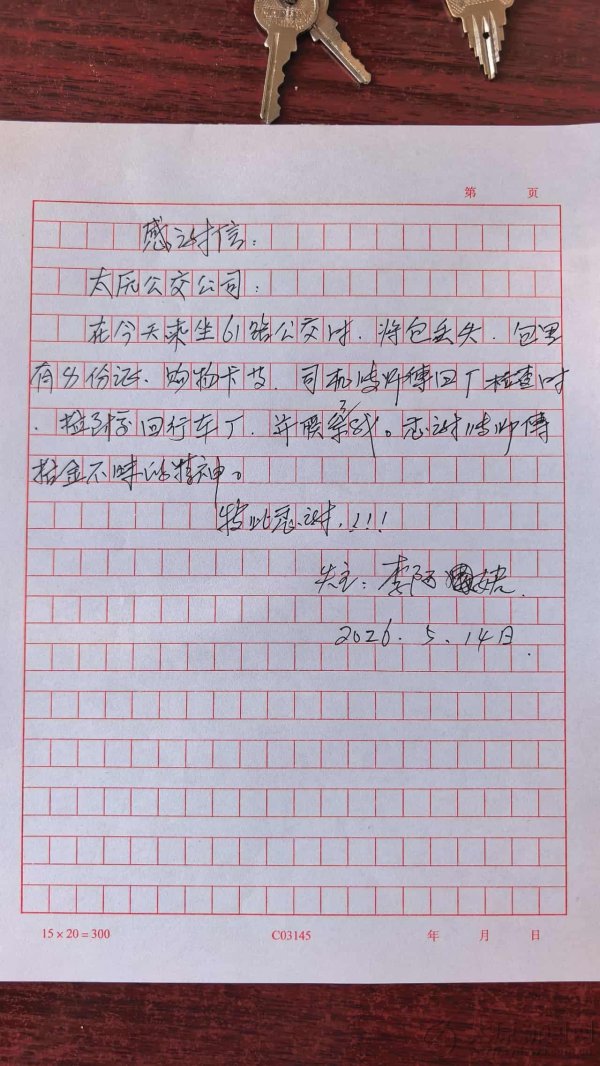 第 页
感谢信:
太原公交公司:
在今天乘坐61路公交时.将包丢失.包里
有身份证、购物卡等.司机师傅回厂检查时
.捡到 回行车厂.并联系了我。感谢 师傅
拾金不昧的精神。
特此感谢.!!!
失主:李阿
2026.5.14日.
15×20=300 C03145 年 月 日